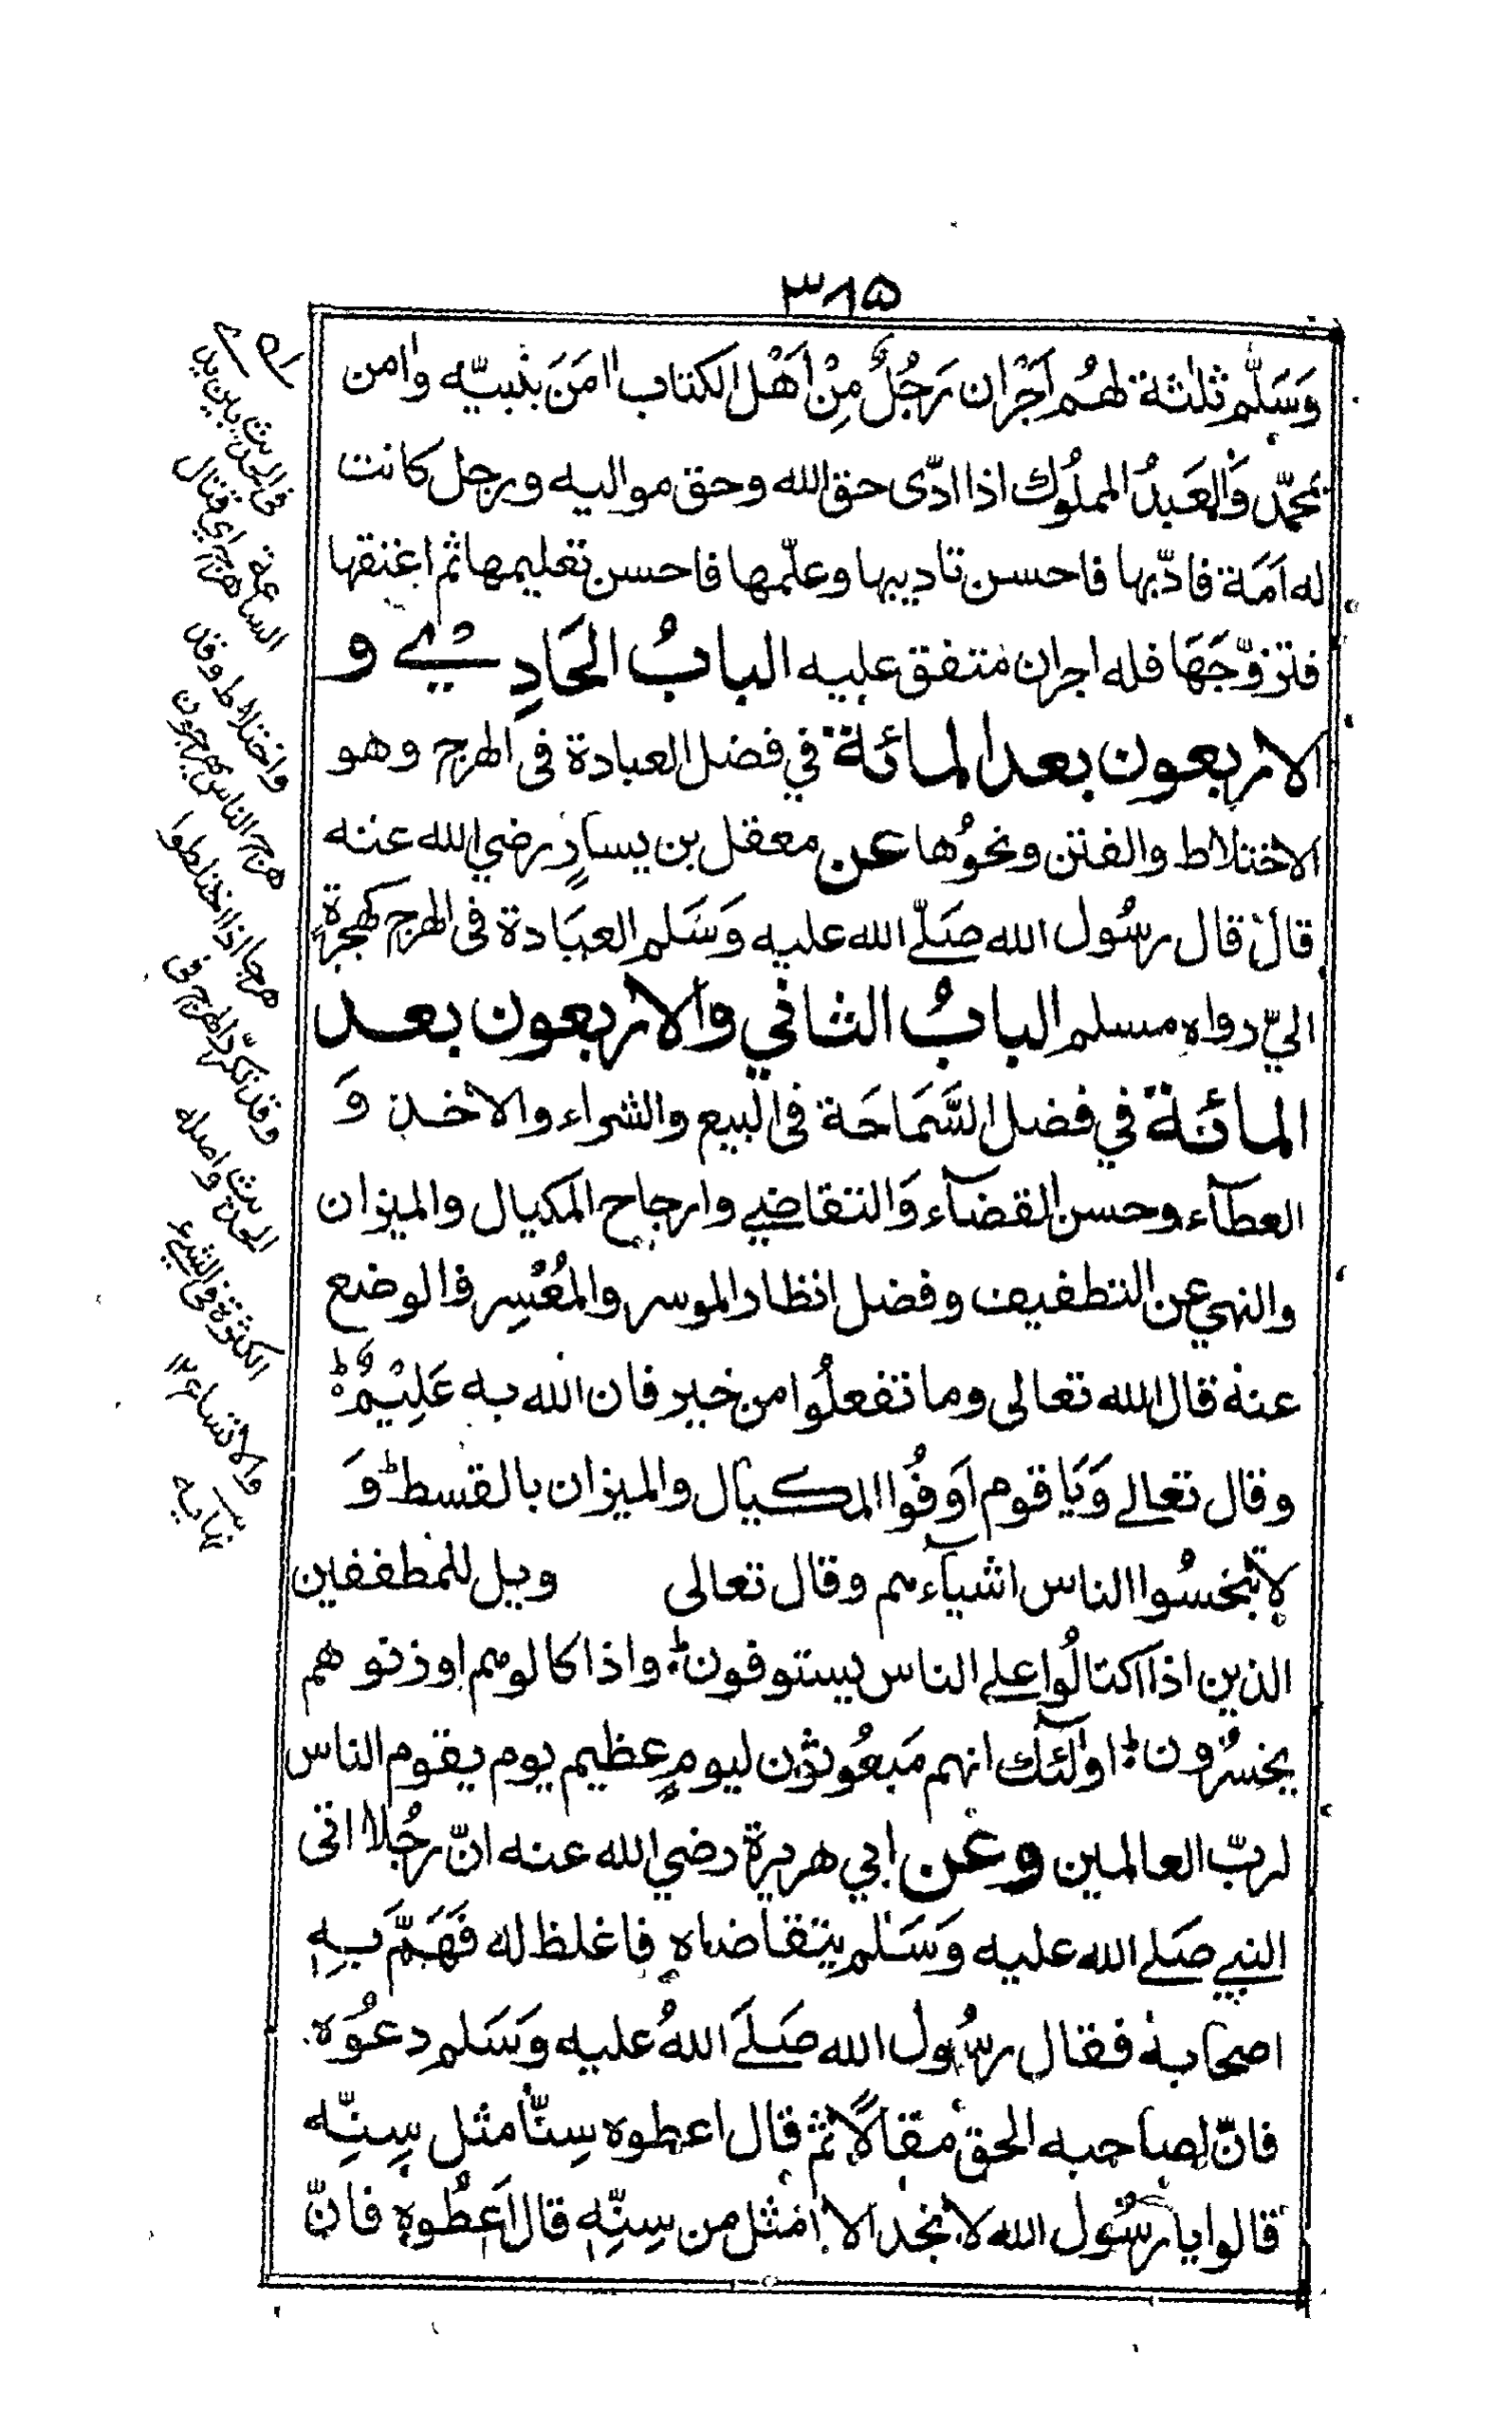 ٣٨۵
وَسَلَّم ثلٰثة لهُم اَجْران رَجُلٌ مِنْ اَهْل الكتاب اٰمَنَ بنبيّه واٰمن
بمحمّد وَالعَبدُ المملُوك اذا ادّى حق الله وحق مواليه ورجل كانت
له اَمَة فادّبها فاحسن تاديبها وعلّمها فاحسن تعليمها ثم اعتقها
فتزوّجَهَا فله اجران متفق عليه البابُ الحَادِي و
الاربعون بعد المائة في فضل العبادة فى الهرج وهو
الاختلاط والفتن ونحوُها عن معقل بن يسارٍ رضي الله عنه
قال قال رسُول الله صَلّے الله عليه وَسَلم العبَادة فى الهرج كهجرةٍ
اليّ رواه مسلم البابُ الثاني والاربعون بعد
المائة في فضل السَّمَاحَة فى البيع والشراء والاخذ وَ
العطآء وحسن القضآء وَالتقاضي وارجاح المكيال والميزان
والنهي عن التطفيف وفضل انظار الموسر والمُعْسِر والوضع
عنه قال الله تعالى وما تفعلُوا من خير فان الله به عَلِيْمٌ ط
وقال تعالے وَيَا قوم اَوفُوا المكيال والميزان بالقسط ط وَ
لا تبخسُوا الناس اشيآءهم وقال تعالى ويل للمطففين
الذين اذا اكتالُوا علے الناس يستوفون ط واذا كالوهم اوزنوهم
يخسرُون ط اولٰئك انهم مَبعُوثون ليومٍ عظيم يوم يقوم الناس
لربّ العالمين وعن ابي هريرة رضي الله عنه انّ رجُلا اتى
النبي صَلے الله عليه وَسَلم يتقاضاه فاغلظ له فَهَمَّ بِهٖ
اصحابه فقال رسُول الله صَلےَ اللهُ عليه وَسَلم دعوُه
فانّ لصاحبه الحق مقالاً ثم قال اعطوه سِنّا مثل سِنِّه
قالوا يا رسُول الله لا نجد الا امثل من سِنِّهٖ قال اَعطُوه فانّ
فى الحديث بين يدي
الساعة هرج اي قتال
واختلاط وقد
هرج الناس يهرجون
هرجا اذا اختلطوا
وقد تكرّر الهرج فى
الحديث واصله
الكثرة فى الشيء
والاتساع ١٢
نهايه